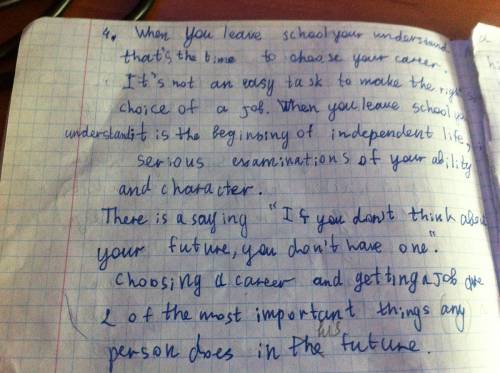 4. When you leave school your understand
that's the time to choose your career.
It's not an easy task to make the right
choice of a job. When you leave school
understands it is the beginning of independent life,
serious examinations of your ability
and character.
There is a saying "If you don't think about
your future, you don't have one".
choosing a career and getting a job are
2 of the most important things any
person does in the his future.